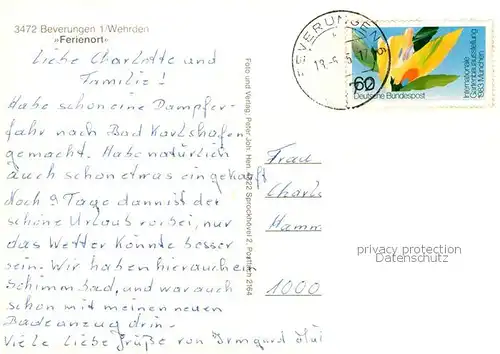 3472 Beverungen 1/Wehrden
»Ferienort«
Liebe Charlotte und
Familie!
Habe schon eine Dampfer-
fahr nach Bad Karlshafen
gemacht. Habe natürlich
auch schon etwas eingekauft
Noch 9 Tage dann ist der
schöne Urlaub vorbei, nur
das Wetter könnte besser
sein. Wir haben hier auch ein
Schwimmbad, und war auch
schon mit meinen neuen
Badeanzug drin.
Viele liebe Grüße von Irmgard
Foto und Verlag: Peter Joh. Hen 4322 Sprockhövel 2, Postfach 2164
BEVERUNGEN
60
Deutsche Bundespost
Internationale
Gartenbauausstellung
1983 München
Frau
Charl
Hamm
1000
privacy protection
Datenschutz